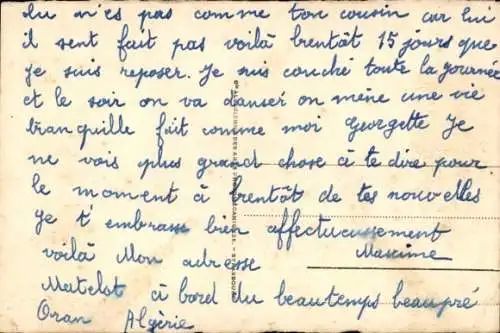 tu n'es pas comme ton cousin car lui
il s'ent fait pas voilà bientôt 15 jours que
je suis reposer. Je suis couché toute la journée
et le soir on va danser on mène une vie
tranquille fait comme moi Georgette Je
ne vois plus grand chose à te dire pour
le moment à bientôt de tes nouvelles
Je t'embrasse bien affectueusement
voilà Mon adresse Maxime
Matelot à bord du beautemps beaupré
Oran Algérie